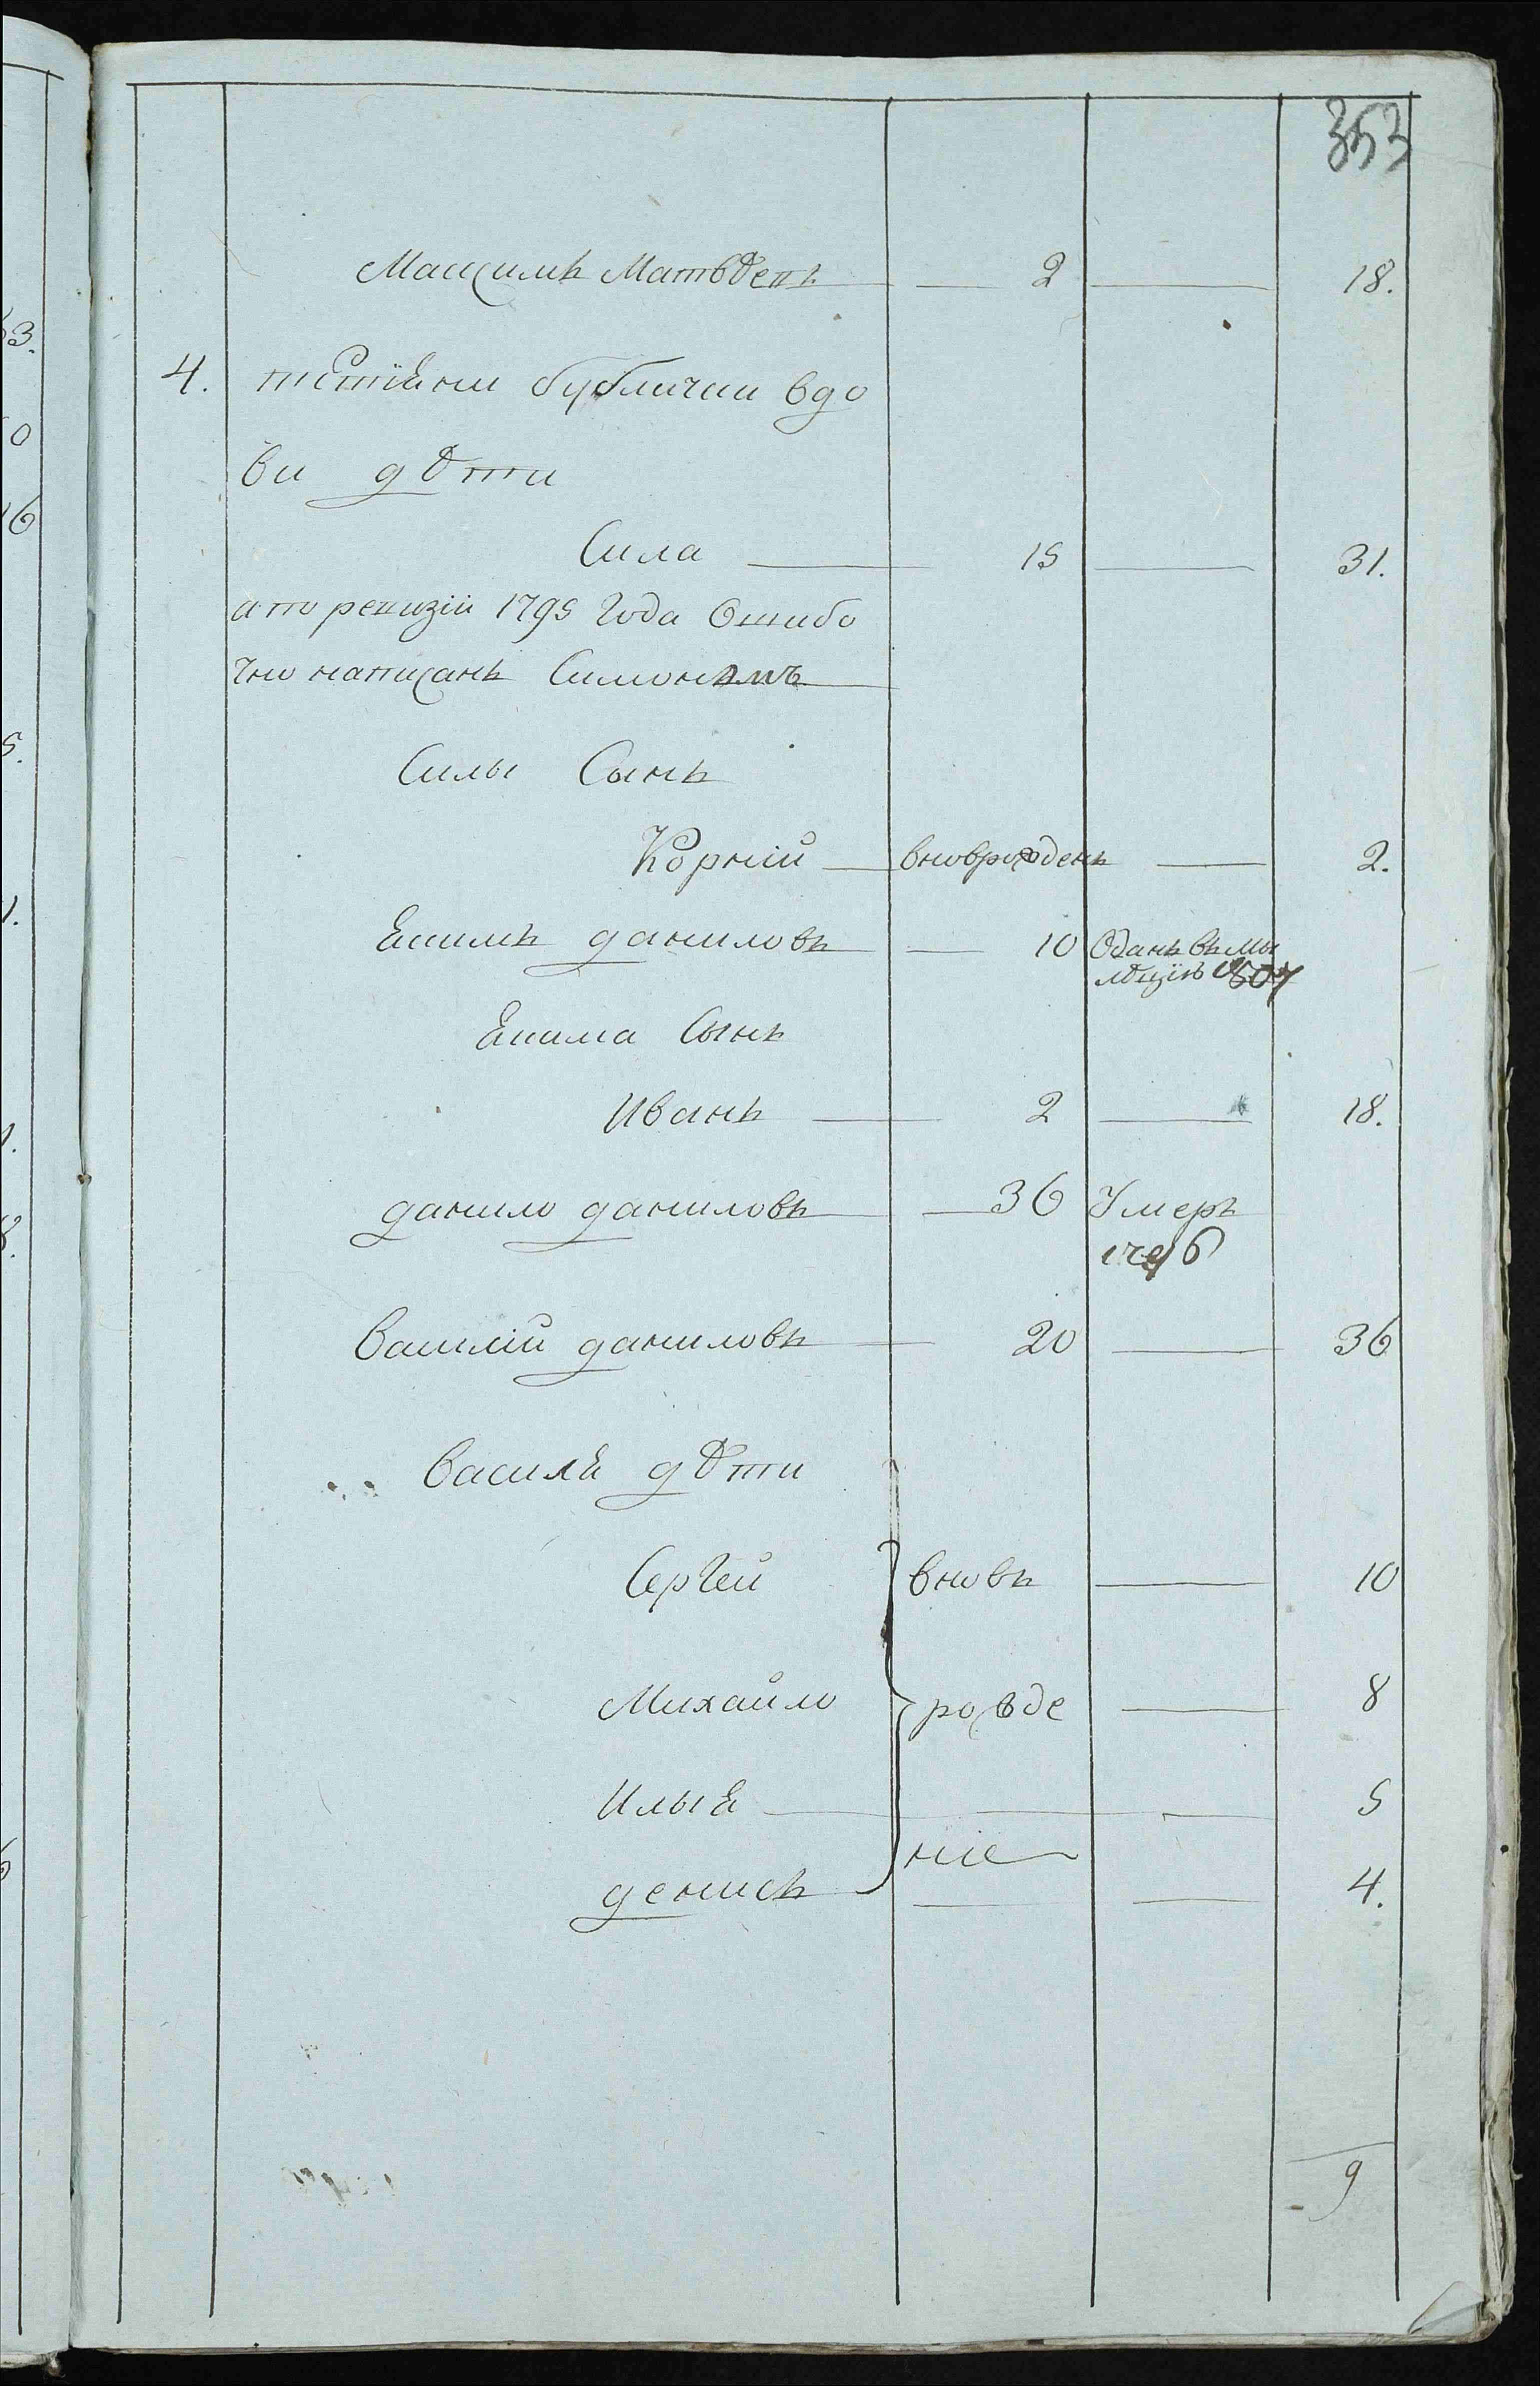 353
Максимъ Матвѣевъ 2 18.
4. Бубличии вдо
ви дѣти
Сила 15 31.
а по ревизіи 1795 года Ошибо
чно написанъ Симономъ
Силы Сынъ
Корній вноврожденъ 2.
Екимъ даниловъ 10 Одань въ ми
лѣцію 1807
Екима Сынъ
Иванъ 2 18.
данило даниловъ 36 Умеръ
1796
Василій даниловъ 20 36
Василя дѣти
Сергей вновь 10
Михайло рожде 8
Илья 5
ніе
денисъ 4.
9